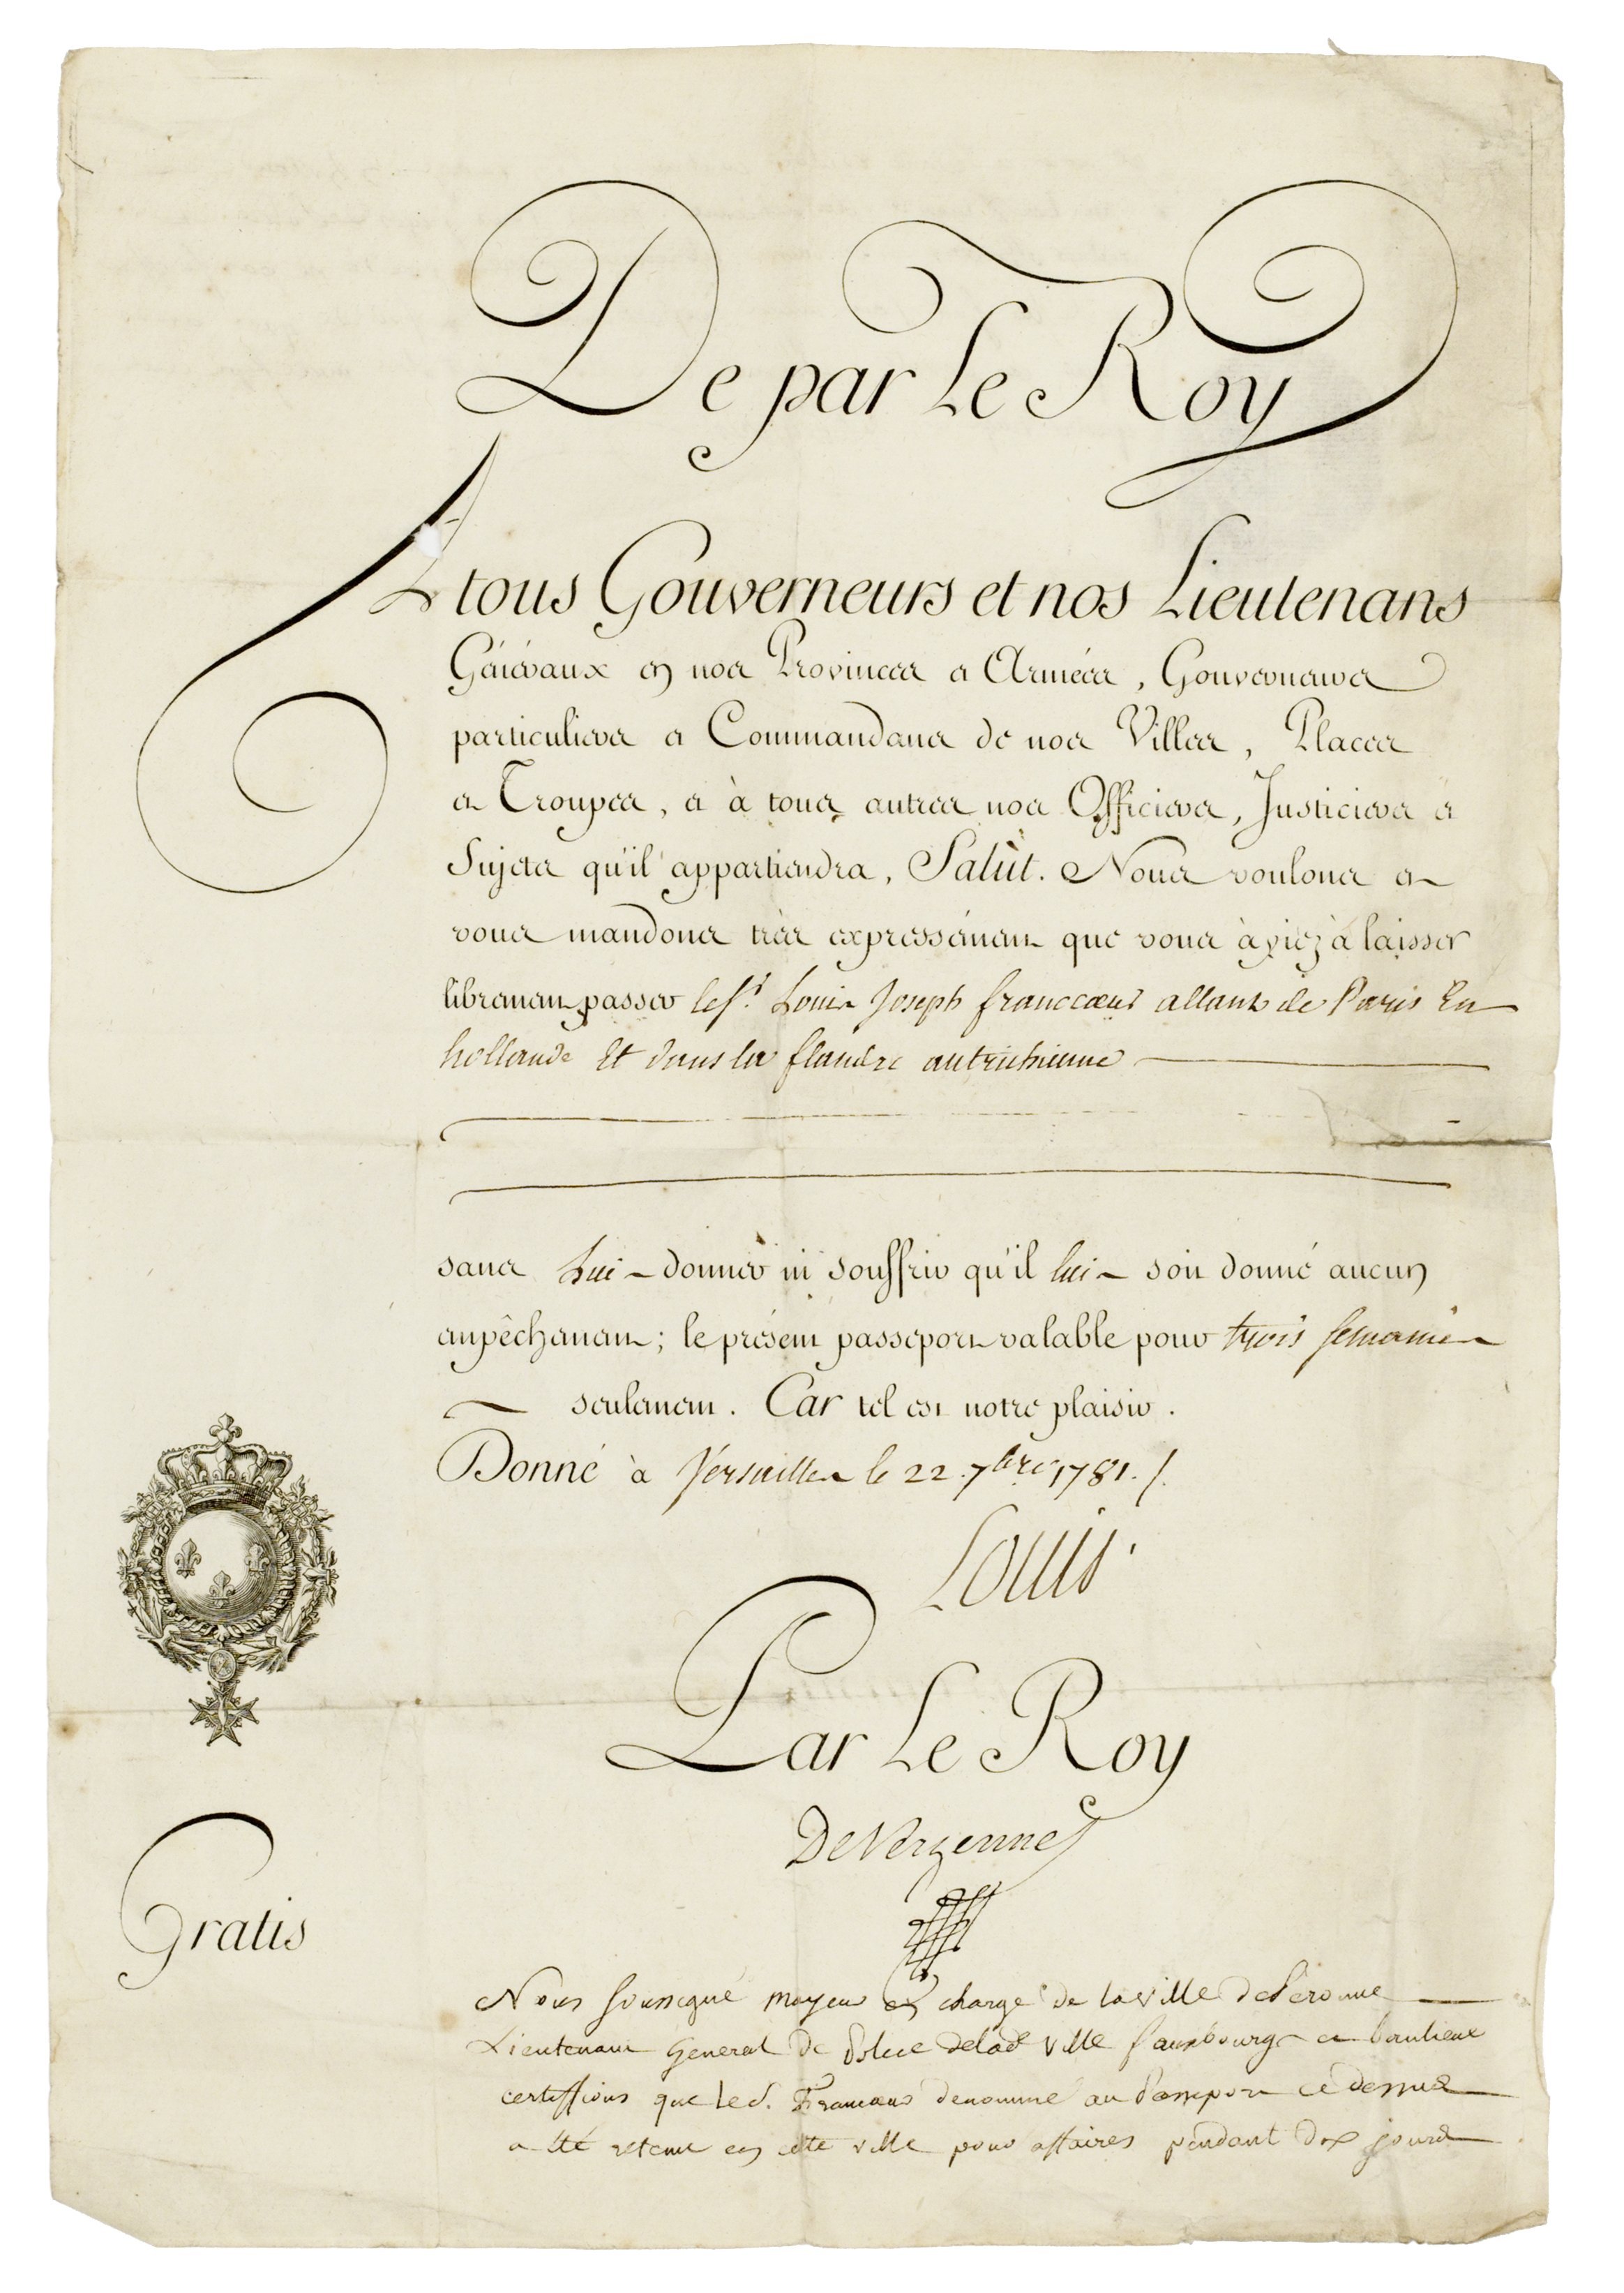 De par Le Roy
A tous Gouverneurs et nos Lieutenans
Généraux en nos Provinces et Armées, Gouverneurs
particuliers et Commandans de nos Villes, Places
et Troupes, et à tous autres nos Officiers, Justiciers et
Sujets qu'il appartiendra, Salut. Nous voulons et
vous mandons très expressément que vous ayiez à laisser
librement passer le Sr. Louis Joseph francoeur allant de Paris En
hollande Et dans la flandre autrichienne
sans Lui donner ni souffrir qu'il lui soit donné aucun
empêchement; le présent passeport valable pour trois semaines
seulement. Car tel est notre plaisir.
Donné à Versailles le 22 7bre 1781.
Louis
Par Le Roy
De Vergennes
Gratis
Nous soussigné mayeur en charge de la ville de Péronne
Lieutenant General de Police de lad. ville fauxbourgs et banlieue
certiffions que le S. Francœur denommé au Passeport ci dessus
a été retenu en cette ville pour affaires pendant dix jours